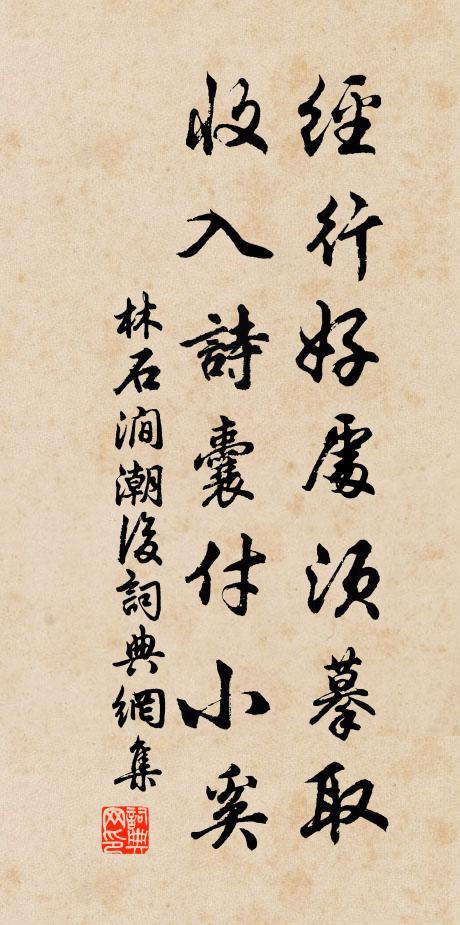 經行好處須摹取
收入詩囊付小奚
林石澗潮後詞典網集
詞典网印